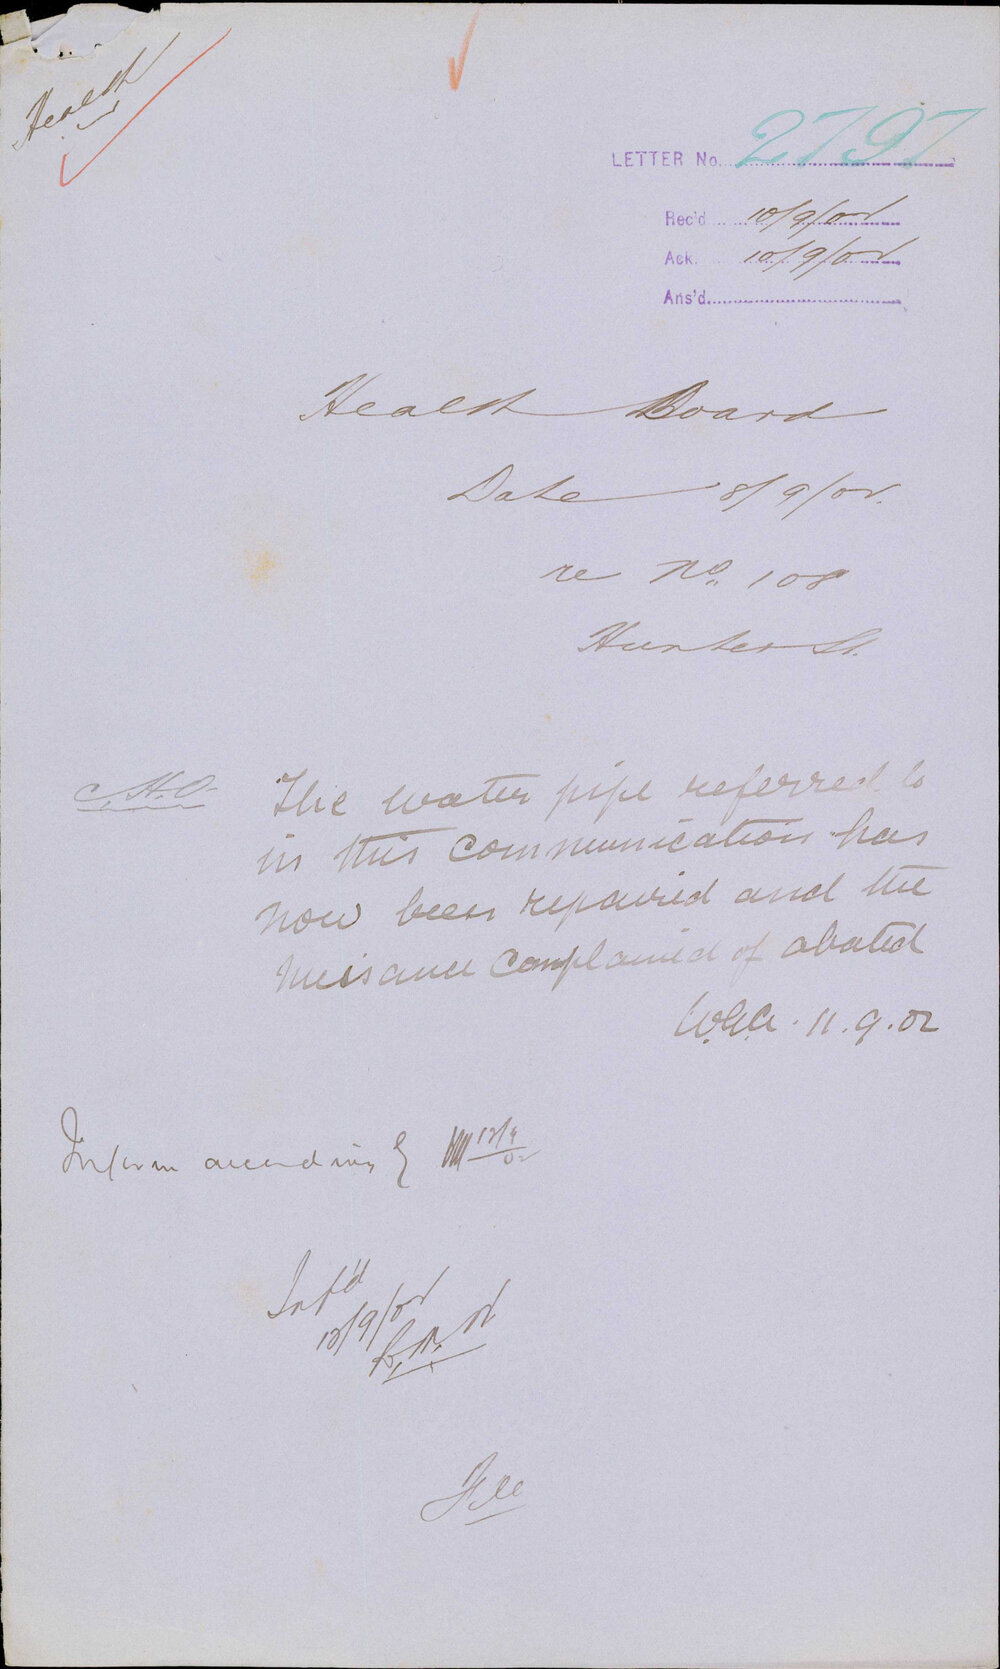 Health
LETTER No. 2797
Rec'd 10/9/02
Ack. 10/9/02
Ans'd
Health Board
Date 8/9/02.
re No. 108
Hunter St.
H.O.
The water pipe referred to
in this communication has
now been repaired and the
nuisance complained of abated
11.9.02
Inform accordingly 12/9/02
Inf'd
12/9/02
File